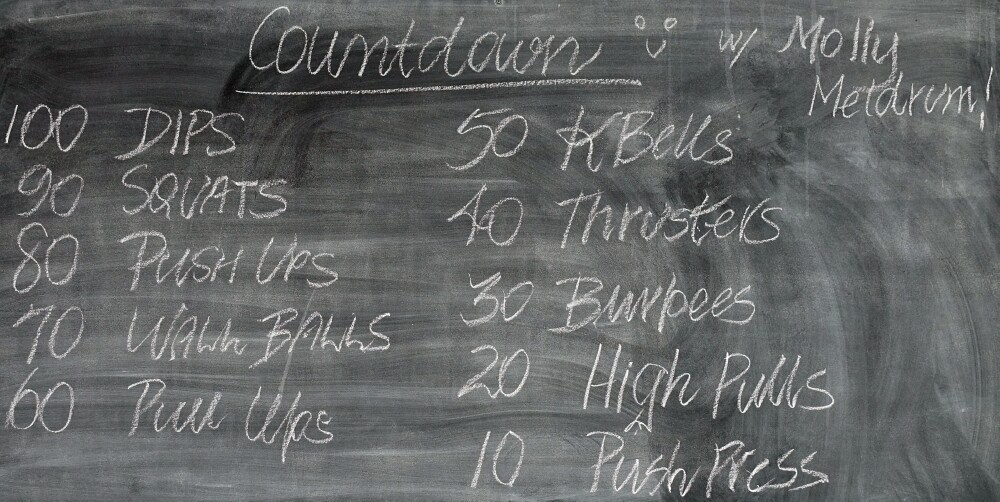 Countdown w/ Molly
Metdrum!
100 DIPS
90 SQUATS
80 PUSH UPS
70 WALL BALLS
60 Pull Ups
50 KBells
40 Thrusters
30 Burpees
20 High Pulls
10 Push Press